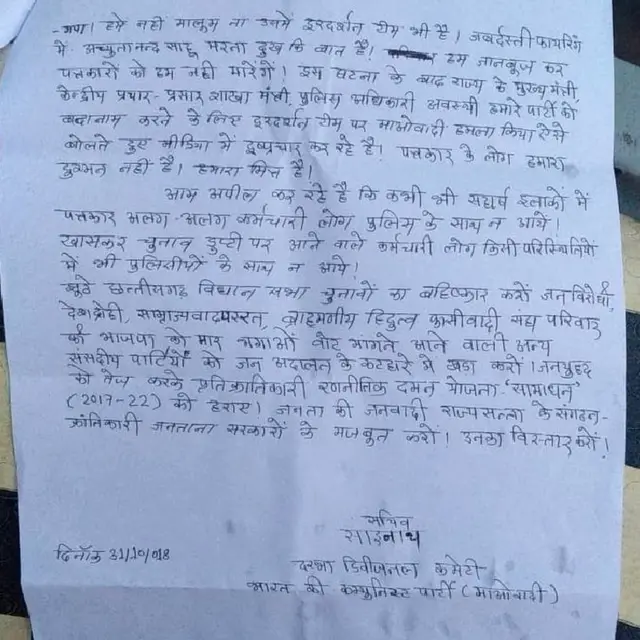 -गया। हमे नही मालूम था उसमे दूरदर्शन टीम भी है। जबर्दस्ती फायरिंग
में अच्युतानन्द साहू मरना दुख कि बात है। हम जानबूज कर
पत्रकारों को हम नही मारेंगे। इस घटना के बाद राज्य के मुख्य मंत्री,
केन्द्रीय प्रचार-प्रसार शाखा मंत्री, पुलिस अधिकारी अवस्थी हमारे पार्टी को
बदानाम करने के लिए दूरदर्शन टीम पर माओवादी हमला किया ऐसे
बोलते हुए मीडिया में दुष्प्रचार कर रहे है। पत्रकार के लोग हमारा
दुश्मन नहीं है। हमारा मित्र है।
आम अपील कर रहे है कि कभी भी संघर्ष इलाकों में
पत्रकार अलग-अलग कर्मचारी लोग पुलिस के साथ न आये।
खासकर चुनाव डुप्टी पर आने वाले कर्मचारी लोग किसी परिस्थितियों
में भी पुलिसोंपों के साथ न आये।
झूटे छत्तीसगढ़ विधान सभा चुनावों का बहिष्कार करों जनविरोधी,
देशद्रोही, साम्राज्यवादपरस्त, ब्राहमणीय हिंदुत्व फासीवादी संघ परिवार
की भाजपा को मार भगाओं वोट मांगते आने वाली अन्य
संसदीय पार्टियों को जन अदालत के कटहारे में खडा करों। जनयुद्ध
को तेज करके प्रतिक्रांतिकारी रणनीतिक दमन योजना-'समाधान'
(2017-22) को हराए। जनता की जनवादी राज्यसत्ता के संगठन-
क्रांतिकारी जनताना सरकारों के मजबुत करों। उनका विस्तार करों।
सचिव
साइनाथ
दिनाँक 31/10/018
दरभा डिवीजनल कमेटी-
भारत की कम्युनिस्ट पार्टी (माओवादी)